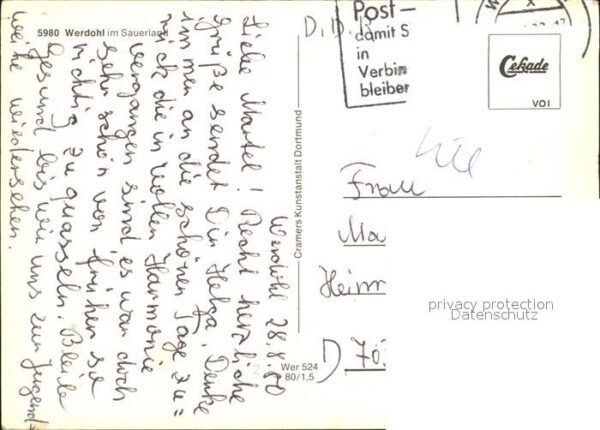 5980 Werdohl im Sauerland
Werdohl 28.8.80
Liebe Martel! Recht herzliche
Grüße sendet Dir Helga. Denke
immer an die schönen Tage zu=
rück die in vollen Harmonie
vergangen sind es war doch
sehr schön von früher so
richtig zu quasseln. Bleibe
gesund bis wir uns zur Jugend=
weihe wiedersehen.
Cramers Kunstanstalt Dortmund
Wer 524
80/1,5
D.D.
Post-
damit S
in
Verbin
bleiben
Cekade
VOI
Frau
Ma
Heinr
D 70
privacy protection
Datenschutz